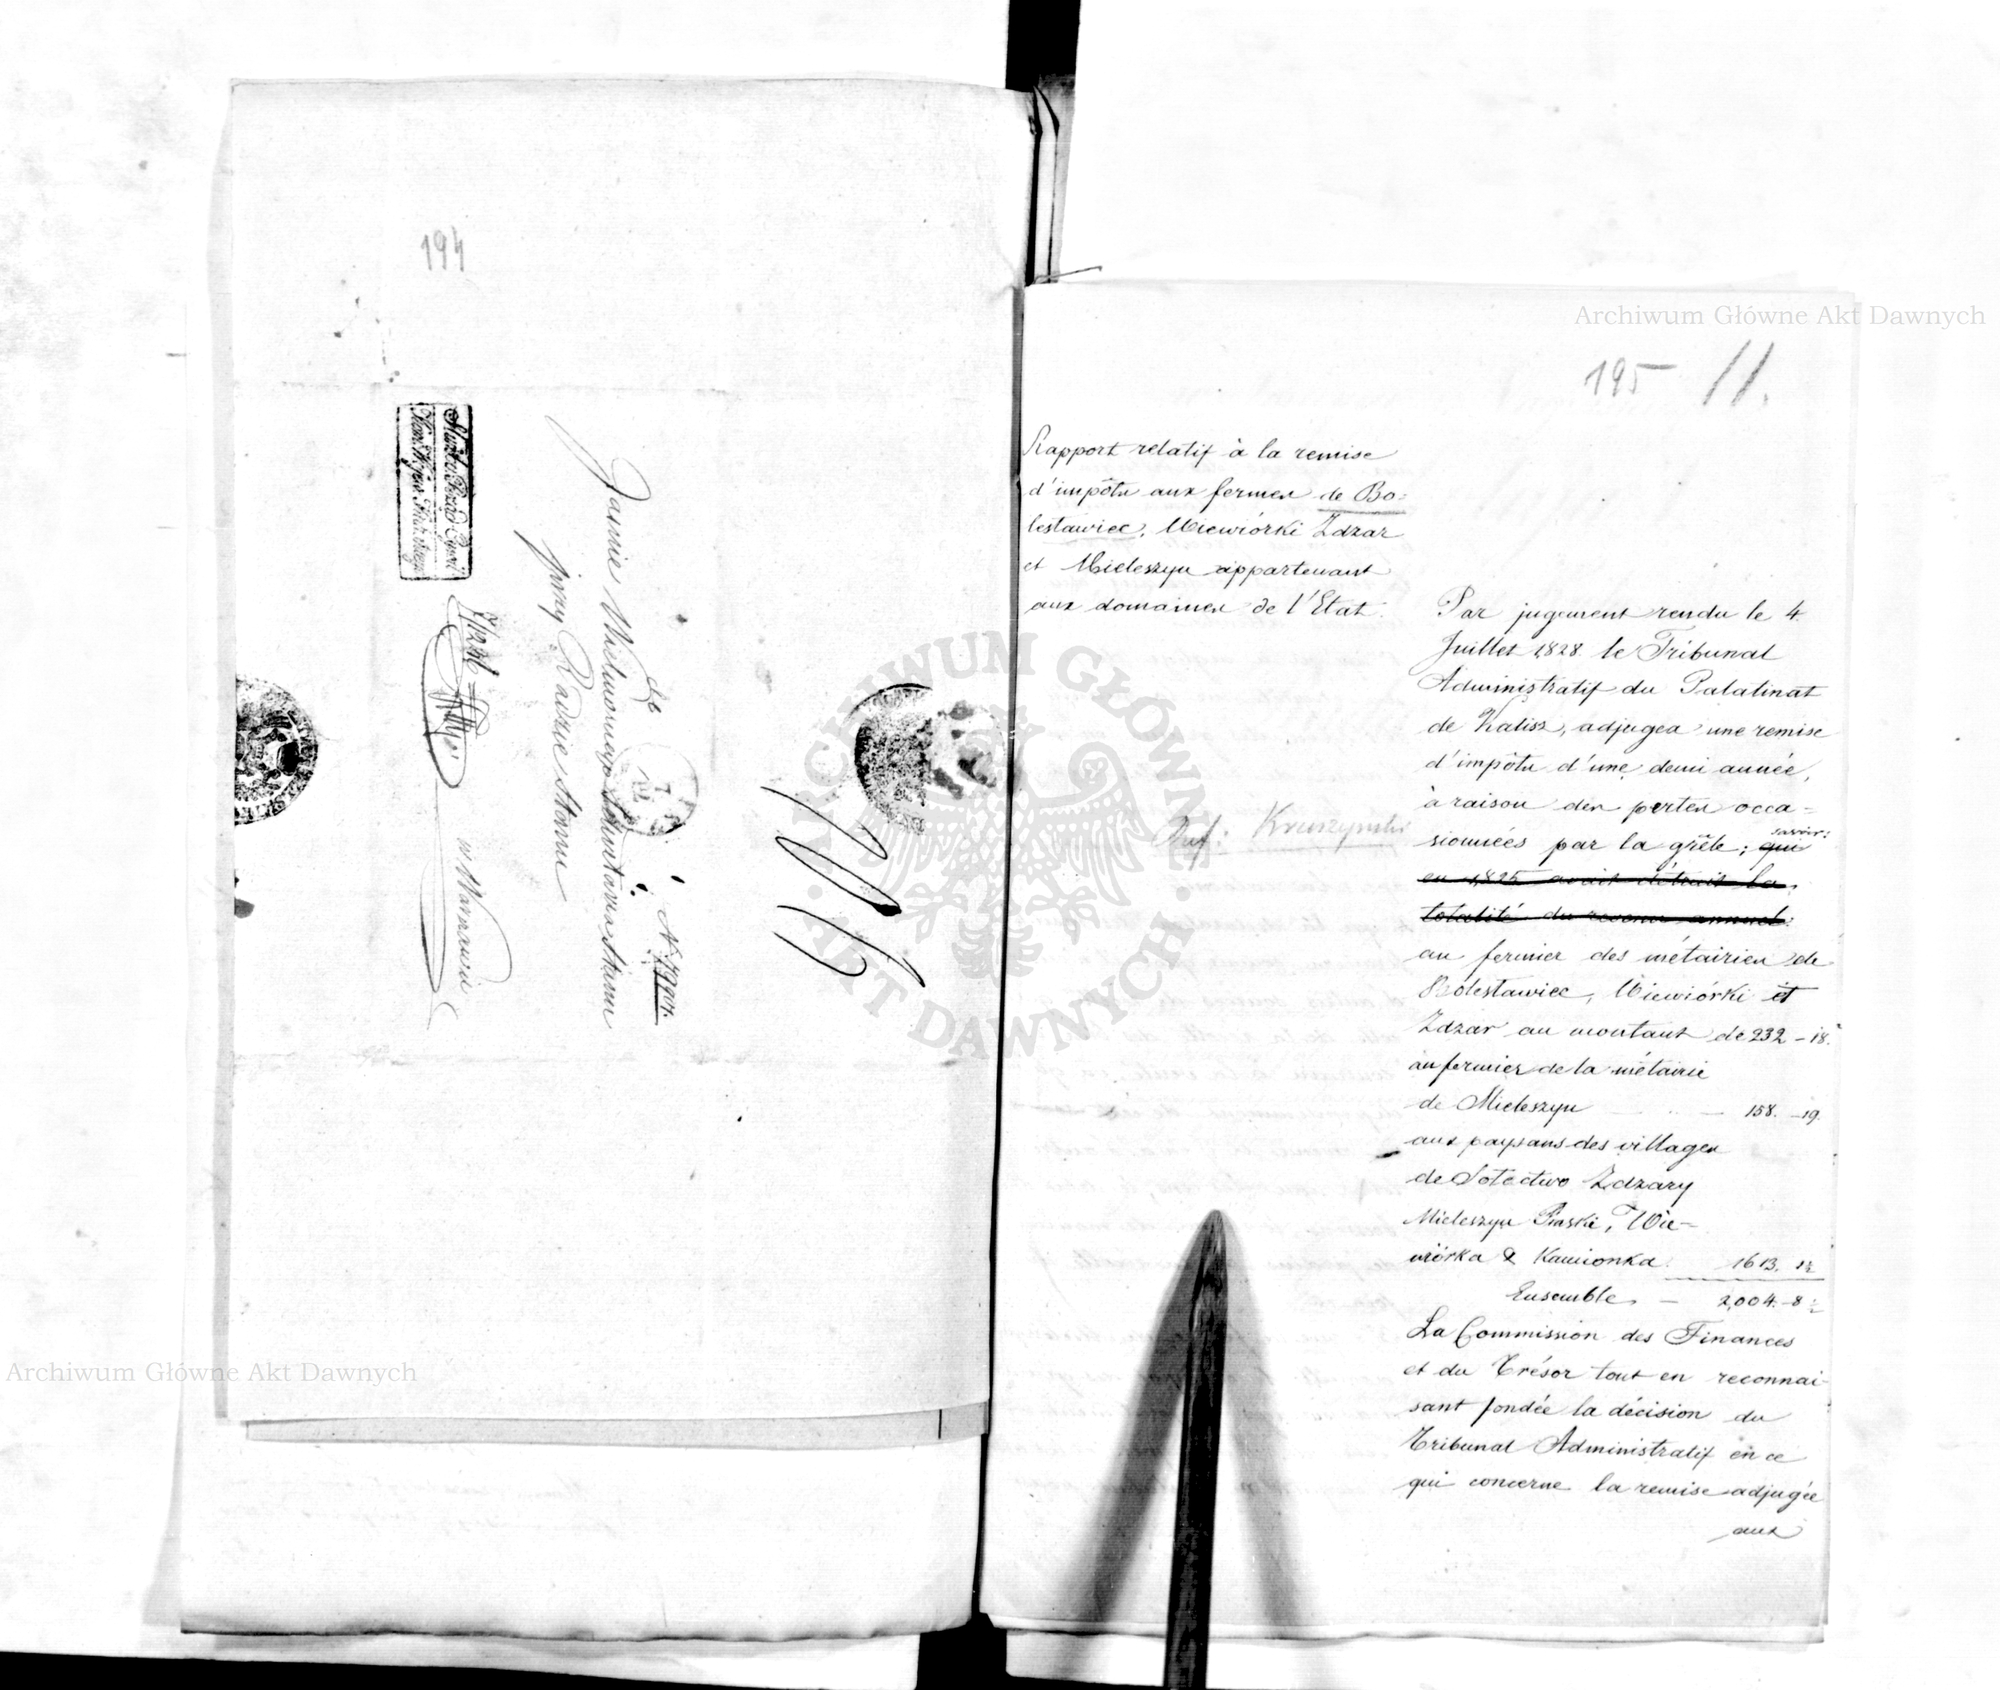 194
Jaśnie Wielmożnego
Radzie Stanu
w Warszawie
195 11.
Rapport relatif à la remise
d'impôts aux fermes de Bo=
lesławiec, Wiewiórki Zdzar
et Mieleszyn appartenant
aux domaines de l'Etat.
Kruszyński
Par jugement rendu le 4
Juillet 1828 le Tribunal
Administratif du Palatinat
de Kalisz, adjugea une remise
d'impôts d'une demi année,
à raison des pertes occa=
sionnées par la grêle; qui savoir:
en 1825 avait détruit la
totalité du revenu annuel.
au fermier des métairies de
Bolesławiec, Wiewiórki et
Zdzar au montant de 232 - 18.
au fermier de la métairie
de Mieleszyn - 158. - 19.
aux paysans des villages
de Sołectwo Zdzary
Mieleszyn Piaski, Wie-
wiórka & Kamionka. 1613.
Ensemble - 2,004. - 8
La Commission des Finances
et du Trésor tout en reconnai-
sant fondée la décision du
Tribunal Administratif en ce
qui concerne la remise adjugée
aux
Archiwum Główne Akt Dawnych
Archiwum Główne Akt Dawnych
ARCHIWUM GŁÓWNE
AKT DAWNYCH